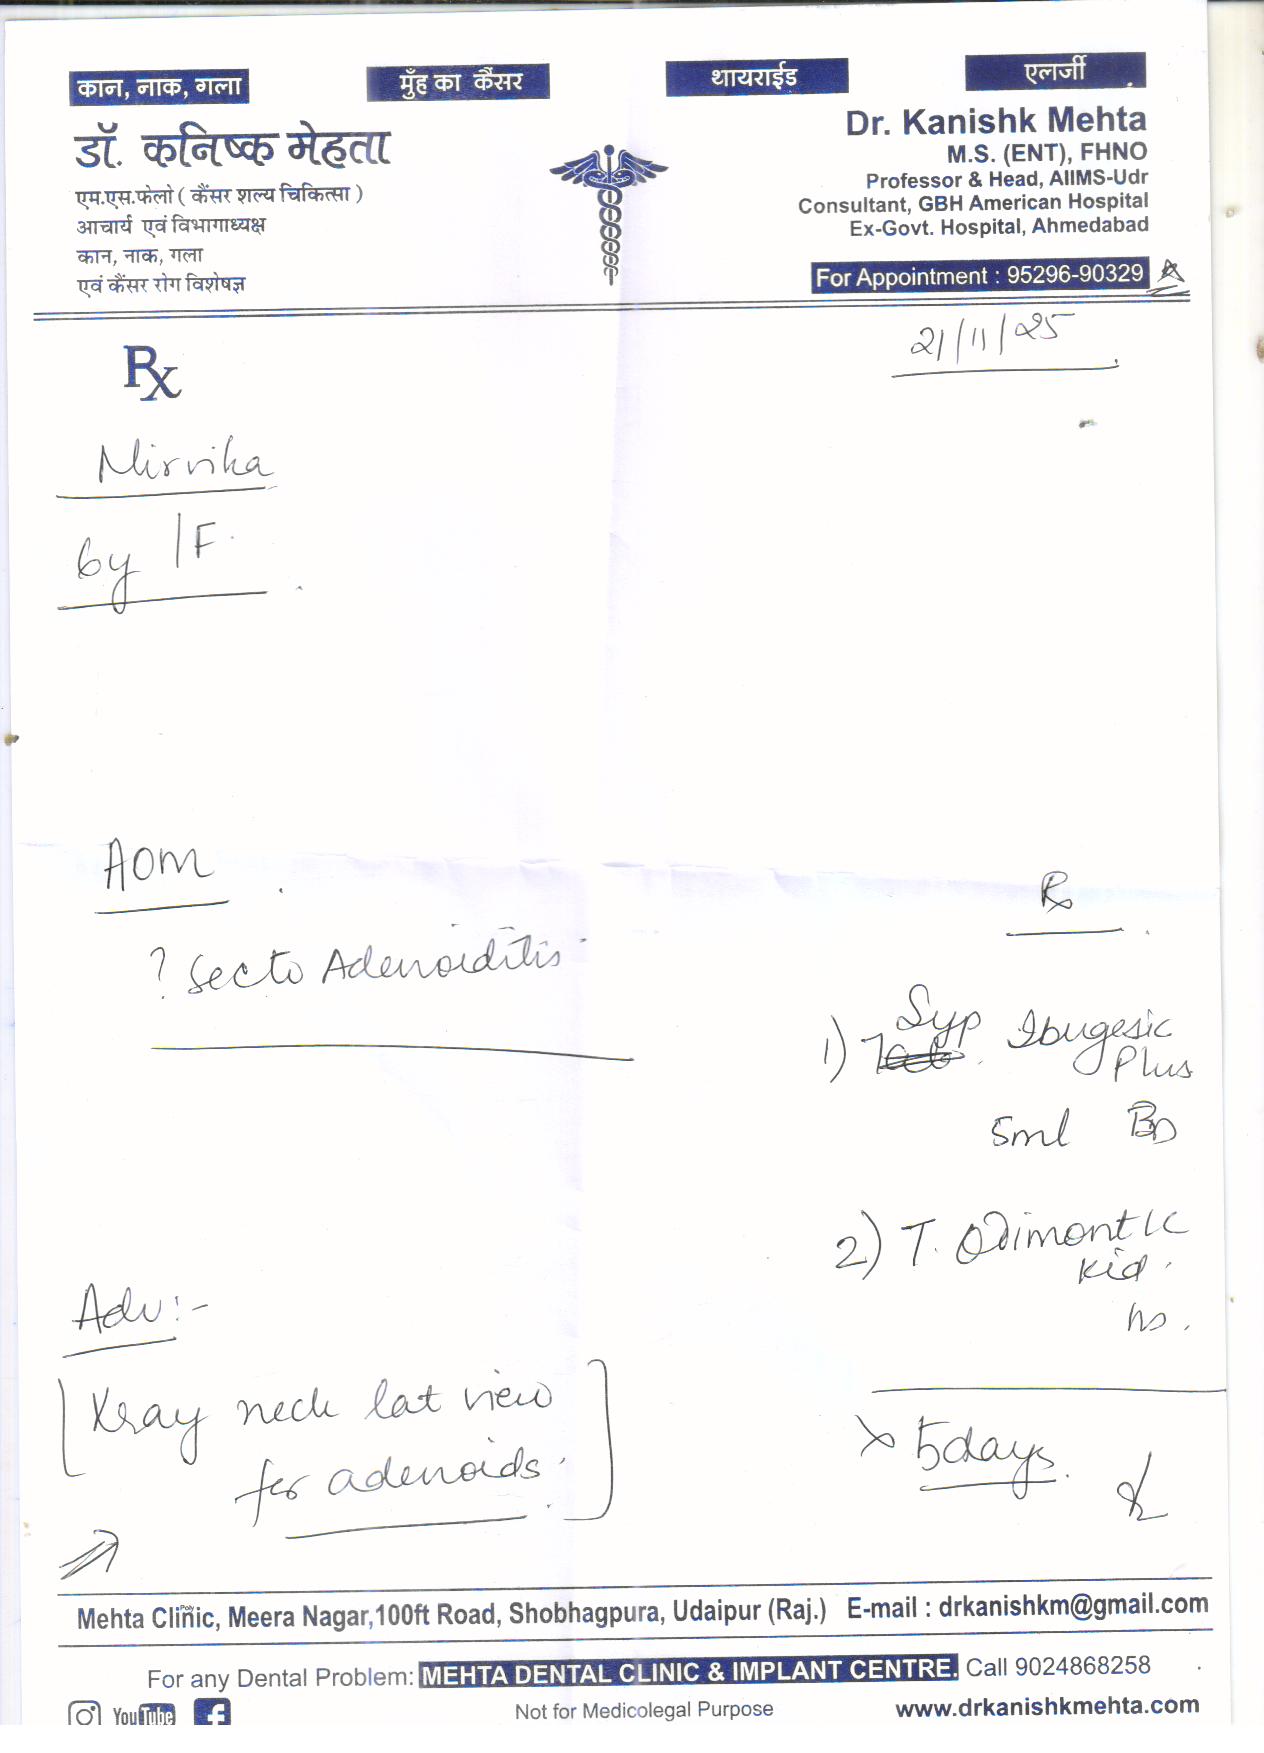 कान, नाक, गला
मुँह का कैंसर
थायराईड
एलर्जी
डॉ. कनिष्क मेहता
एम.एस.फेलो ( कैंसर शल्य चिकित्सा )
आचार्य एवं विभागाध्यक्ष
कान, नाक, गला
एवं कैंसर रोग विशेषज्ञ
Dr. Kanishk Mehta
M.S. (ENT), FHNO
Professor & Head, AIIMS-Udr
Consultant, GBH American Hospital
Ex-Govt. Hospital, Ahmedabad
For Appointment : 95296-90329
21/11/25
Rx
Nirvika
6y /F.
AOM
? Sec to Adenoiditis
Adv :-
Xray neck lat view
for adenoids.
Rx
1) Syp Ibugesic
Plus
5ml BD
2) T. Odimont LC
Kid.
hs.
x 5days.
Mehta Poly Clinic, Meera Nagar,100ft Road, Shobhagpura, Udaipur (Raj.) E-mail : drkanishkm@gmail.com
For any Dental Problem: MEHTA DENTAL CLINIC & IMPLANT CENTRE. Call 9024868258
YouTube
Not for Medicolegal Purpose
www.drkanishkmehta.com